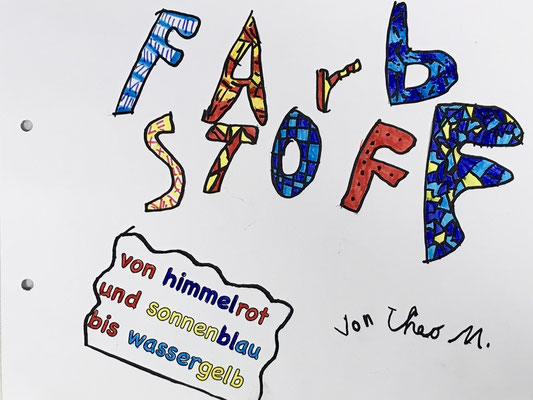 FArb
STOFF
von himmelrot
und sonnenblau
bis wassergelb
von Theo M.